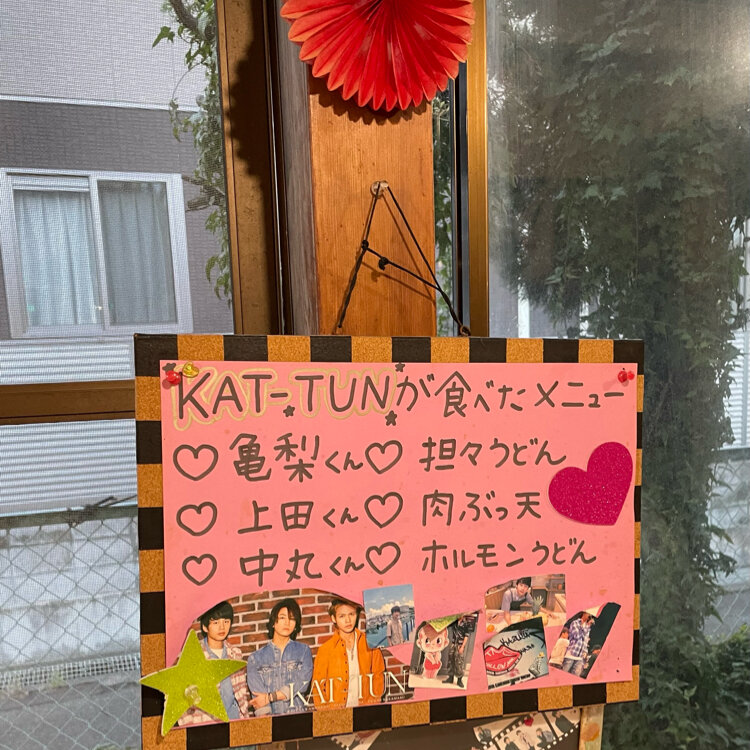 KAT-TUNが食べたメニュー
♡亀梨くん♡担々うどん
♡上田くん♡肉ぶっ天
♡中丸くん♡ホルモンうどん
KAT-TUN